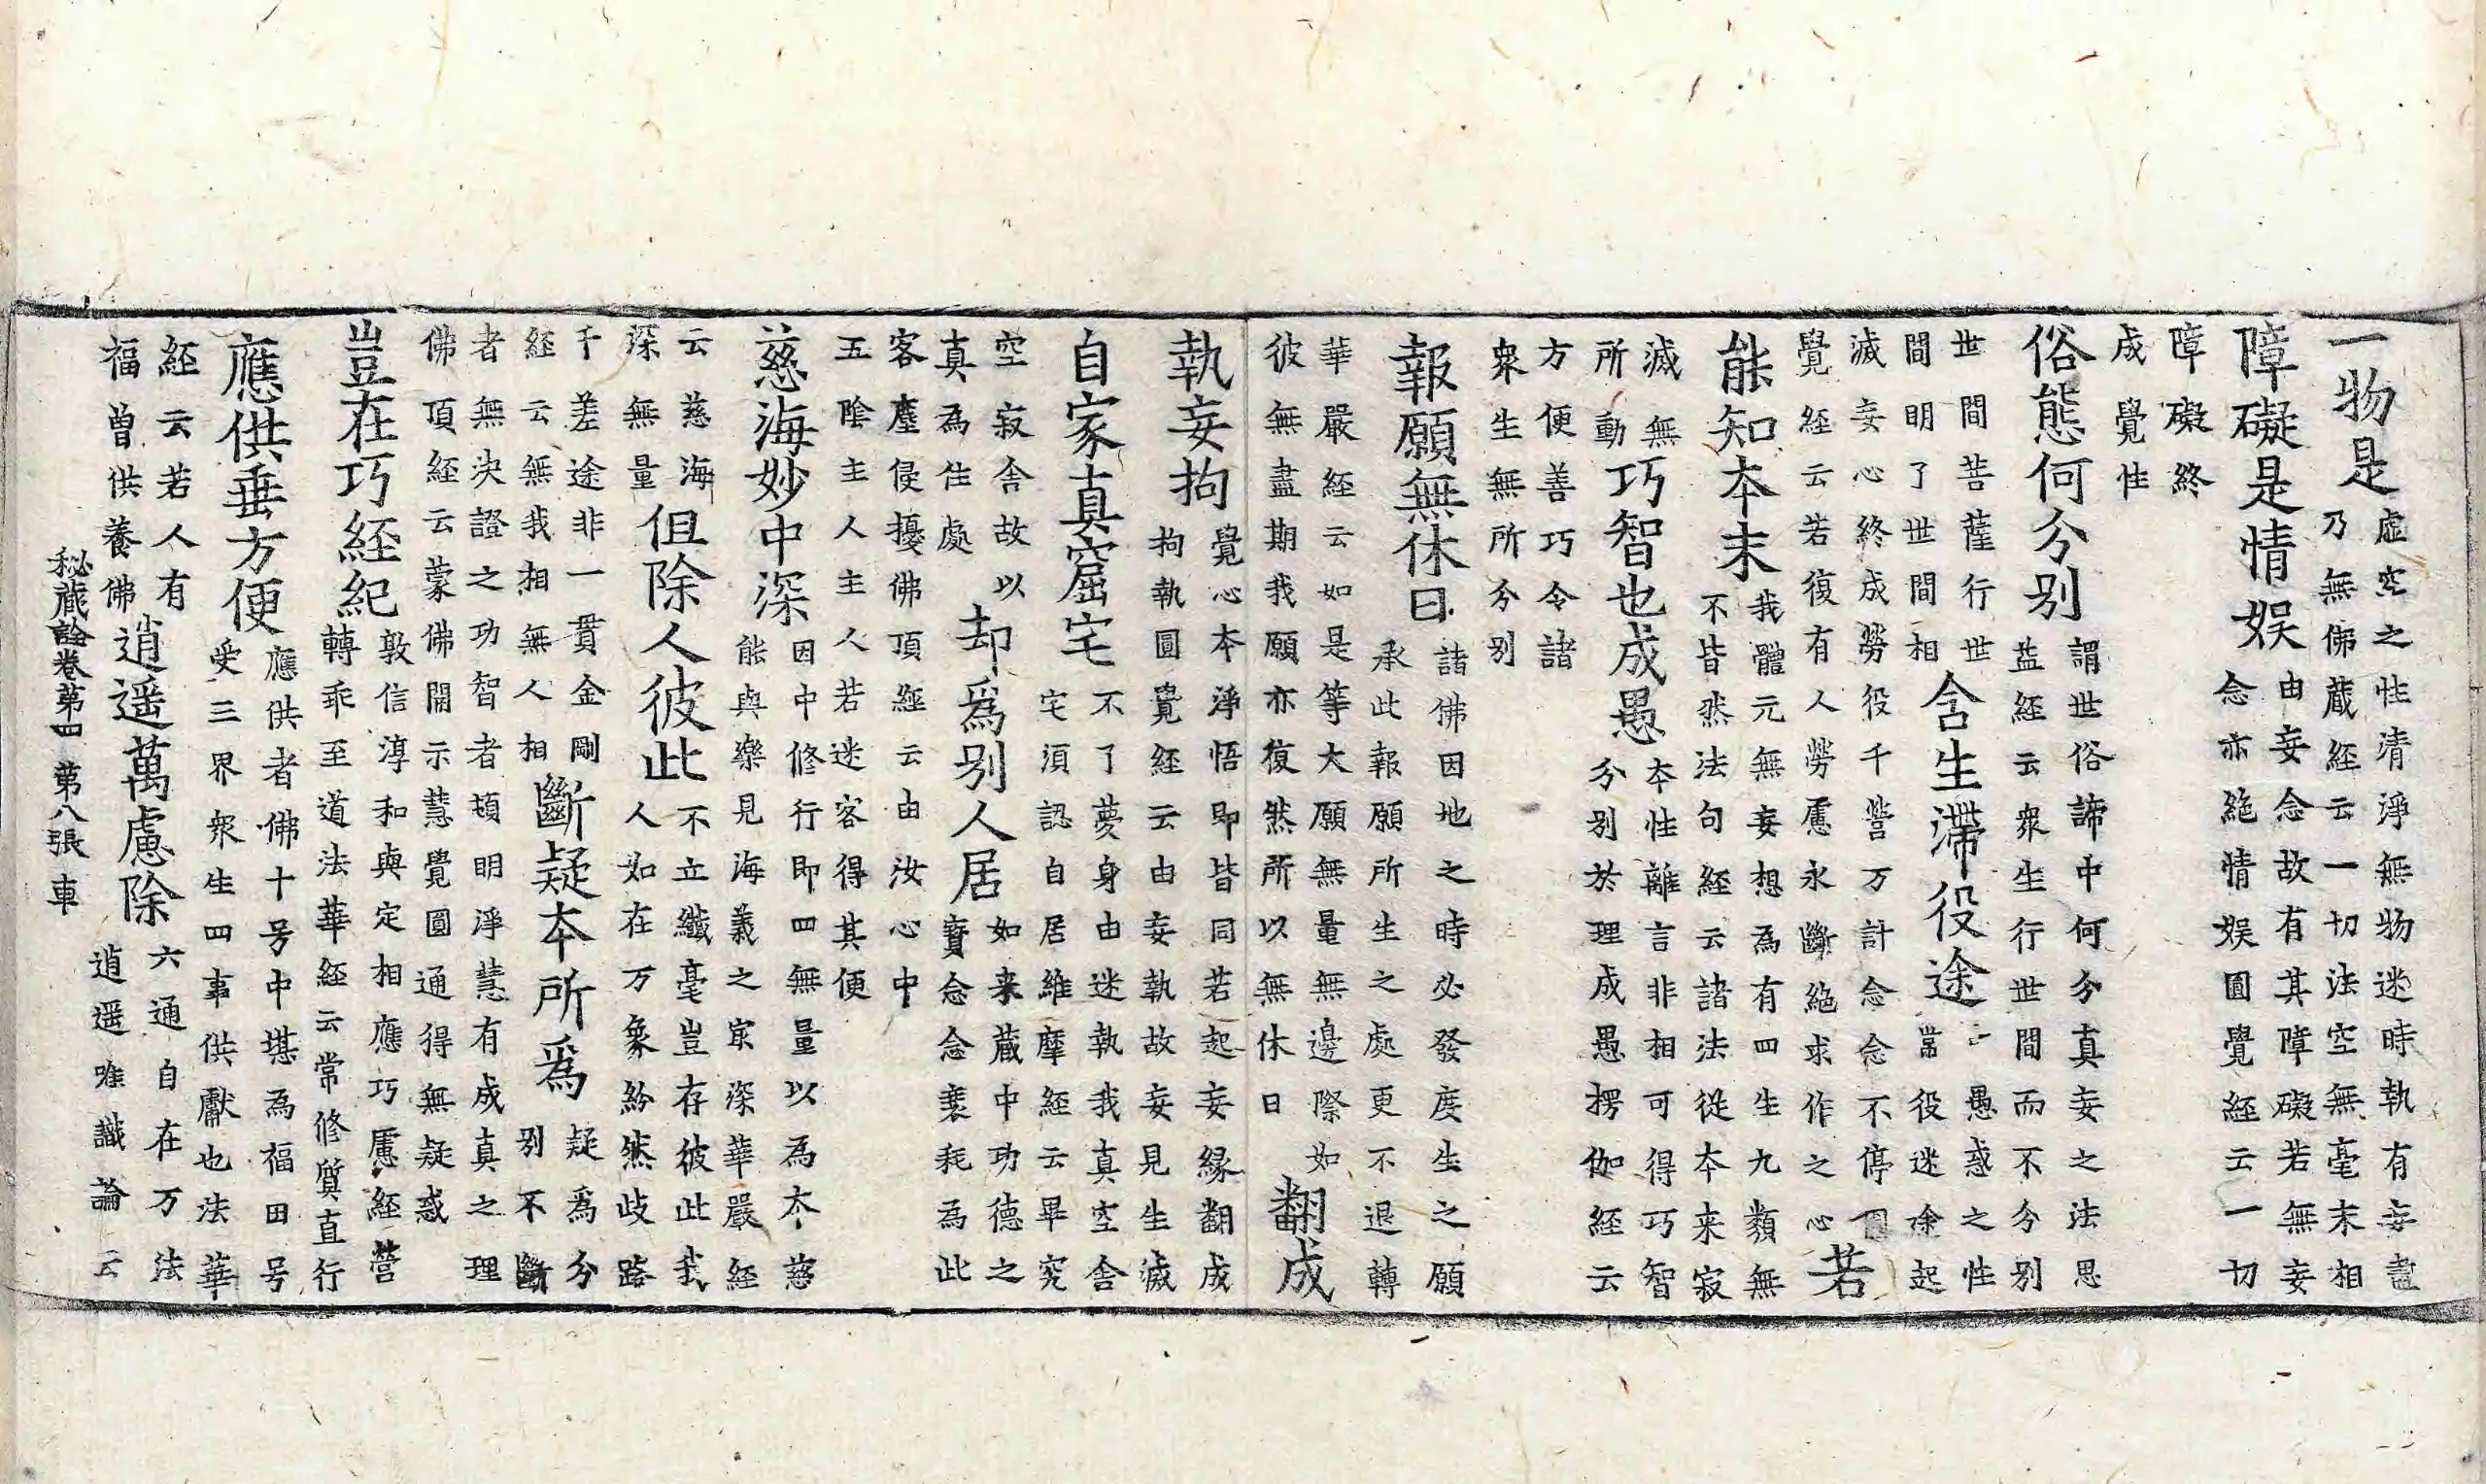 一物是
虛空之性清淨無物迷時執有妄盡
乃無佛蔵経云一切法空無毫末相
障礙是情娱
由妄念故有其障礙若無妄
念亦絶情娱圎覺経云一切
障礙終
成覺性
俗態何分别
謂世俗諦中何分真妄之法思
益経云衆生行世間而不分别
世間菩薩行世
間明了世間相
含生滯役途
愚惑之性
常役迷途起
滅妄心終成勞役千營万計念念不停圎
覺経云若復有人勞慮永斷絶求作之心
若
能知夲末
我體元無妄想為有四生九類無
不皆然法句経云諸法從夲来寂
滅無
所動
巧智也成愚
夲性離言非相可得巧智
分别於理成愚楞伽経云
方便善巧令諸
衆生無所分别
報願無休日
諸佛因地之時必發度生之願
承此報願所生之處更不退轉
華嚴経云如是等大願無量無邊際如
彼無盡期我願亦復然所以無休日
翻成
執妄拘
覺心本淨悟即皆同若起妄緣翻成
拘執圓覺経云由妄執故妄見生滅
自家真窟宅
不了夢身由迷執我真空舍
宅須認自居維摩経云畢究
空寂舍故以
真為住處
却爲别人居
如来蔵中功德之
寳念念衰耗為此
客塵侵擾佛頂経云由汝心中
五陰主人主人若迷客得其便
慈海妙中深
因中修行即四無量以為夲慈
能與樂見海義之㝡深華嚴経
云慈海
深無量
但除人彼此
不立纖毫豈存彼此我
人如在万象紛然歧路
千差途非一貫金剛
経云無我相無人相
斷疑夲所爲
疑爲分
别不斷
者無决證之功智者頓明淨慧有成真之理
佛頂経云蒙佛開示慧覺圓通得無疑惑
豈在巧経紀
敦信淳和與定相應巧慮経營
轉乖至道法華経云常修質直行
應供垂方便
應供者佛十号中堪為福田号
受三界衆生四事供獻也法華
経云若人有
福曽供養佛
逍遥萬慮除
六通自在万法
逍遥唯識論云
秘蔵詮卷第四 第八張 車